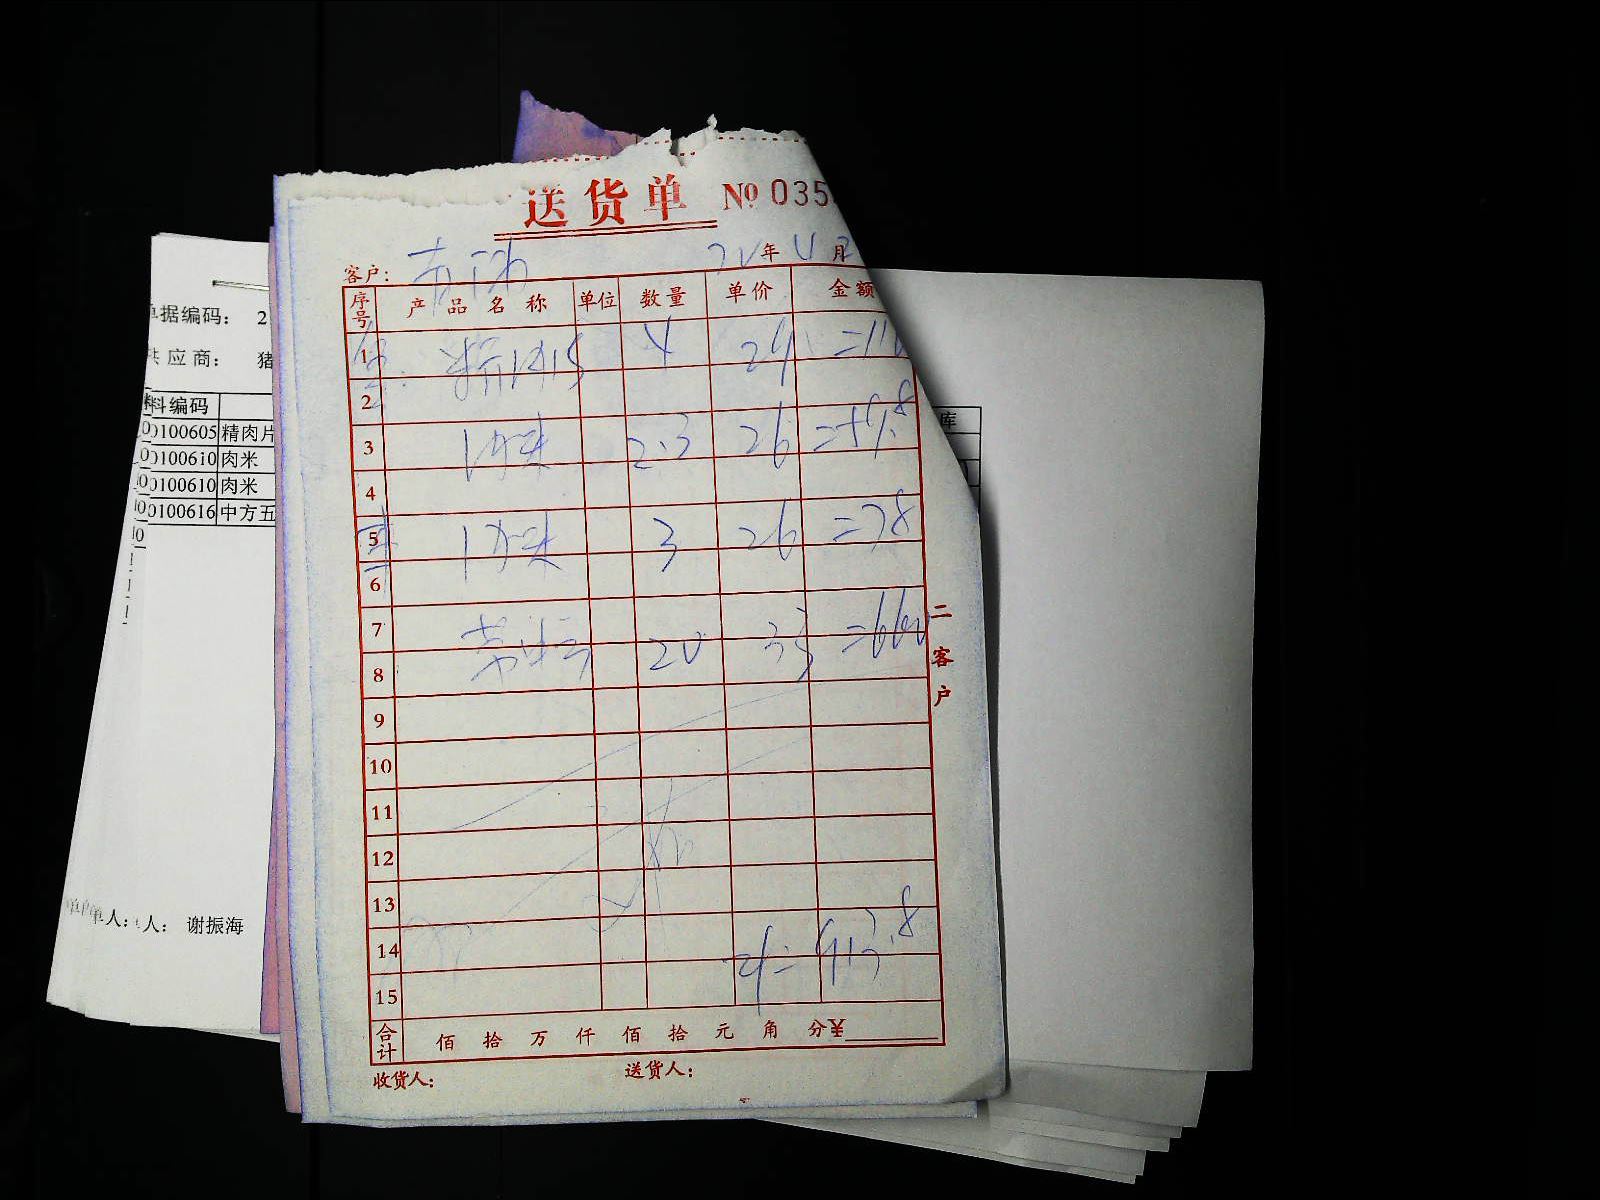 送货单 № 035
客户: 年 月
序号 产品名称 单位 数量 单价 金额
1 4
2
3 肉米 2.3 26 =59.8
4
5 肉米 3 26 =78
6
7
8 20 33 =660
9
10
11
12
13
14
913.8
15
合计 佰 拾 万 仟 佰 拾 元 角 分¥
收货人: 送货人:
二客户
单据编码: 2
供应商: 猪
料编码
0100605 精肉片
0100610 肉米
0100610 肉米
0100616 中方五
单人: 人: 谢振海
库